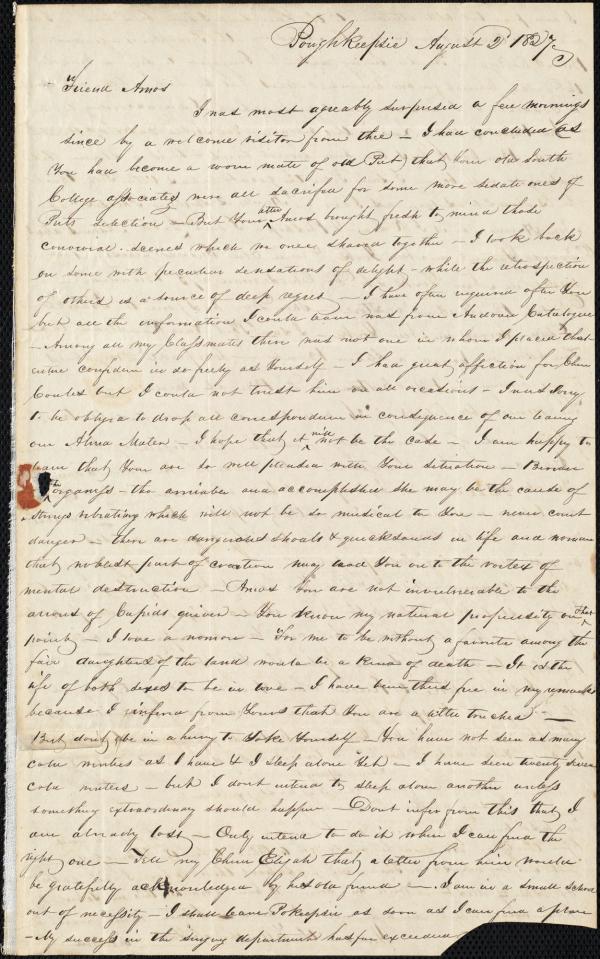 Poughkeepsie August 2d 1827
Friend Amos
I was most agreably surprised a few mornings
since by a welcome visitor from thee – I had concluded as
You had become a room mate of old that Your old South
College associates were all sacrifised for some more sedate ones of
Puts selection – But Your letter Amos brought fresh to mind those
convivial scenes which we once shared together – I look back
on some with peculiar sensations of delight – while the retrospection
of others is a source of deep regret – I have often enquired after You
but all the information I could learn was from Andover Catalogue
– Among all my Classmates there was not one in whom I placed that
entire confidence in so freely as Yourself – I had great affection for Chum
but I could not trust him on all occasions – I was Sorry
to be obliged to drop all correspondence in consequence of our leaving
our Alma Mater – I hope that it will not be the case – I am happy to
learn that You are so well pleased with Your situation – Beware
tho amiable and accomplished she may be the cause of
strings vibrating which will not be so musical to You – never court
danger – there are dangerous shoals & quicksands in life and woman
that noblest part of creation may lead You on to the vortex of
mental destruction – Amos You are not invulnerable to the
arrows of Cupids quiver – You know my natural propensity on that
point – I love a woman – For me to be without a favorite among the
fair daughters of the land would be a kind of death – It is the
life of both sexes to be in love – I have been thus free in my remarks
because I infered from Yours that You are a little touched –
But dont be in a hurry to Yoke Yourself – You have not seen as many
cold winters as I have & I sleep alone Yet – I have seen twenty seven
cold winters – but I dont intend to sleep alone another unless
something extraordinary should happen – Dont infer from this that I
am already lost – Only intend to do it when I can find the
right one – Tell my Chum Elijah that a letter from him would
be gratefully acknowledged by his old friend – I am in a small school
out of necessity – I shall leave Pokeepsie as soon as I can find a place
– My success in the singing department has far exceeded